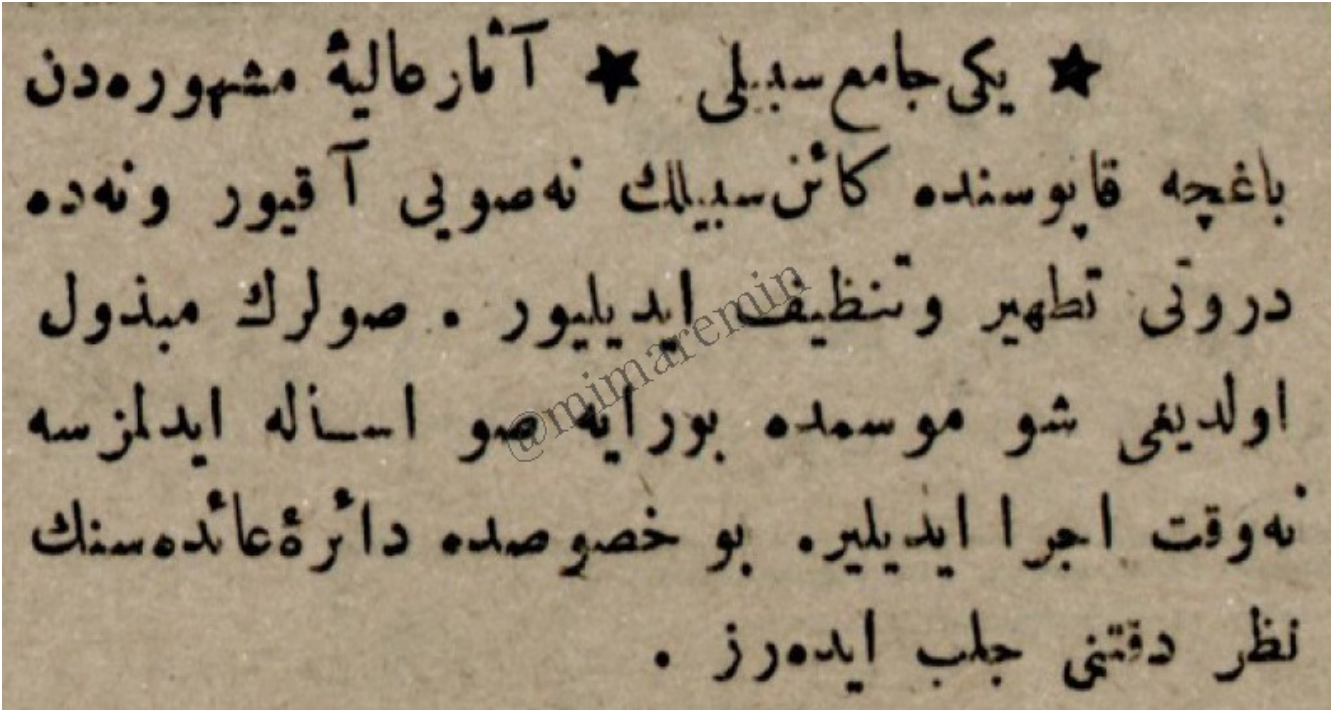 ★ يكى جامع سبيلى ★ آثار عاليهٔ مشهوره‌دن
باغچه قاپوسنده كائن سبيلك نه صويى آقيور و نه ده
دروتى تطهير و تنظيف ايديليور . صولرك مبذول
اولديغى شو موسمده بورايه صو اساله ايدلمزسه
نه وقت اجرا ايديلير. بو خصوصده دائرهٔ عائده سنك
نظر دقتنى جلب ايده رز .
@mimaremin